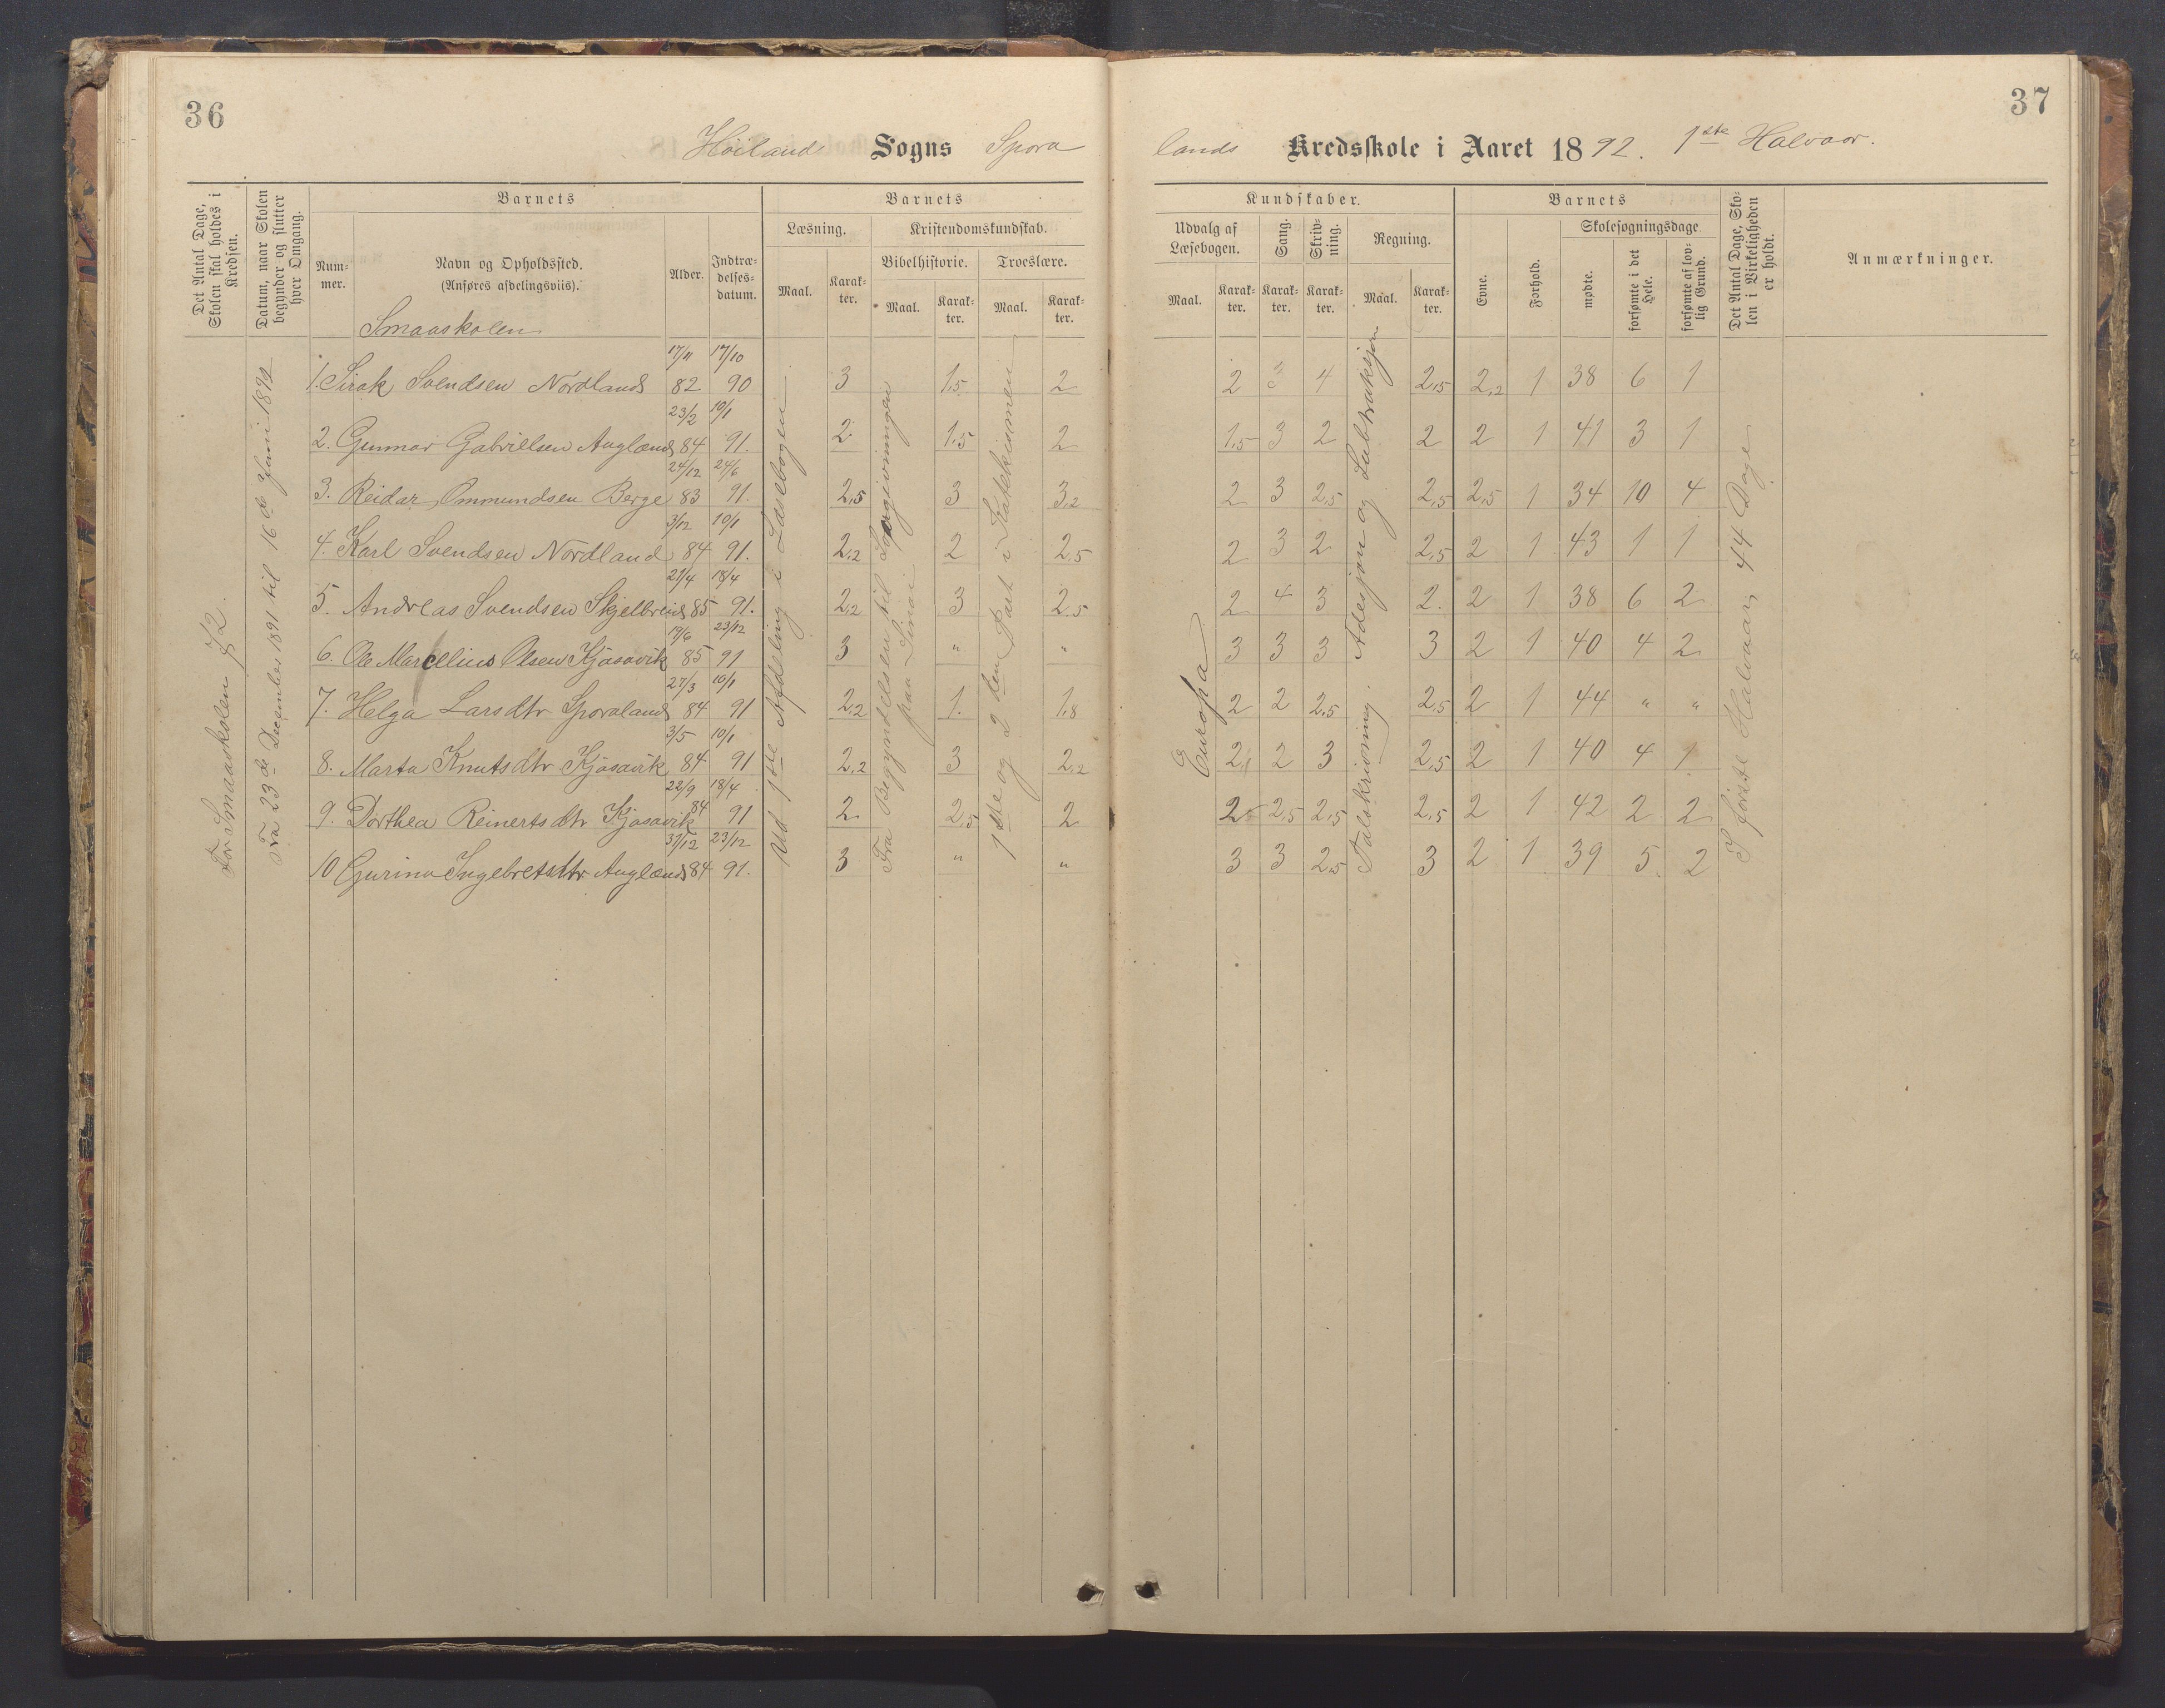 36
Höiland Sogns Spora
Det Antal Dage, Skolen skal holdes i Kredsen.
Datum, naar Skolen begynder og slutter hver Omgang.
Barnets
Num-mer.
Navn og Opholdssted.
(Anføres afdelingsviis).
Alder.
Indtræ-delses-datum.
Barnets
Læsning.
Maal.
Karak-ter.
Kristendomskundskab.
Bibelhistorie.
Troeslære.
Maal.
Karak-ter.
Maal.
Karak-ter.
Smaaskolen
17/11 17/10
1. Sirak Svendsen Nordland 82 90 3 1,5 2
23/2 10/1
2. Gunnar Gabrielsen Auglænd 84 91. 2 1,5 2
24/12 24/6
3. Reidar Ommundsen Berge 83 91. 2,5 3 3,2
3/12 10/1
4. Karl Svendsen Nordland 84 91. 2,2 2 2,5
21/4 18/4
5. Andreas Svendsen Skjelbreid 85 91. 2,2 3 2,5
19/6 23/12
6. Ole Marcelius Olsen Kjosavik 85 91 3 " "
27/3 10/1
7. Helga Larsdtr Sporaland 84 91 2,2 1. 1,8
3/5 10/1
8. Marta Knutsdtr Kjosavik 84 91 2,2 3 2,2
22/9 18/4
9. Dorthea Reinertsdtr Kjosavik 84 91 2 2,5 2
31/12 23/12
10 Gurina Ingebretsdtr Auglænd 84 91. 3 " "
For Smaaskolen 72.
Fra 23de December 1891 til 16de Juni 1892
Ud 1ste Afdeling i Læsebogen
Fra Begyndelsen til Lovgivningen
paa Sinai
1ste og 2den Part i Katekismen
37
lands Kredsskole i Aaret 1892. 1ste Halvaar.
Kundskaber.
Udvalg af Læsebogen.
Maal.
Karak-ter.
Sang.
Karak-ter.
Skriv-ning.
Karak-ter.
Regning.
Maal.
Karak-ter.
Barnets
Evne.
Forhold.
Skolesøgningsdage
mødte.
forsømte i det Hele.
forsømte af lov-lig Grund.
Det Antal Dage, Sko-len i Virkeligheden er holdt.
Anmærkninger.
2 3 4 2,5 2,2 1 38 6 1
1,5 3 2 2 2 1 41 3 1
2 3 2,5 2,5 2,5 1 34 10 4
2 3 2 2,5 2 1 43 1 1
2 4 3 2. 2 1 38 6 2
3 3 3 3 2 1 40 4 2
2 2 2,5 2,5 2 1 44 " "
2 2 3 2,5 2 1 40 4 1
2 2,5 2,5 2,5 2 1 42 2 2
3 3 2,5 3 2 1 39 5 2
Europa
Talskrivning. Adesjon og Subtraksjon
I første Halvaar 44 Dage